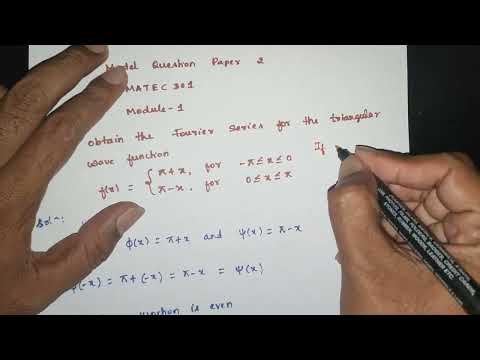 Model Question Paper 2
MATEC 301
Module-1
obtain the Fourier series for the triangular
wave function
If
f(x) = { π+x, for -π≤x≤0
π-x, for 0≤x≤π
Sol^n:
φ(x) = π+x and ψ(x) = π-x
φ(-x) = π+(-x) = π-x = ψ(x)
function is even